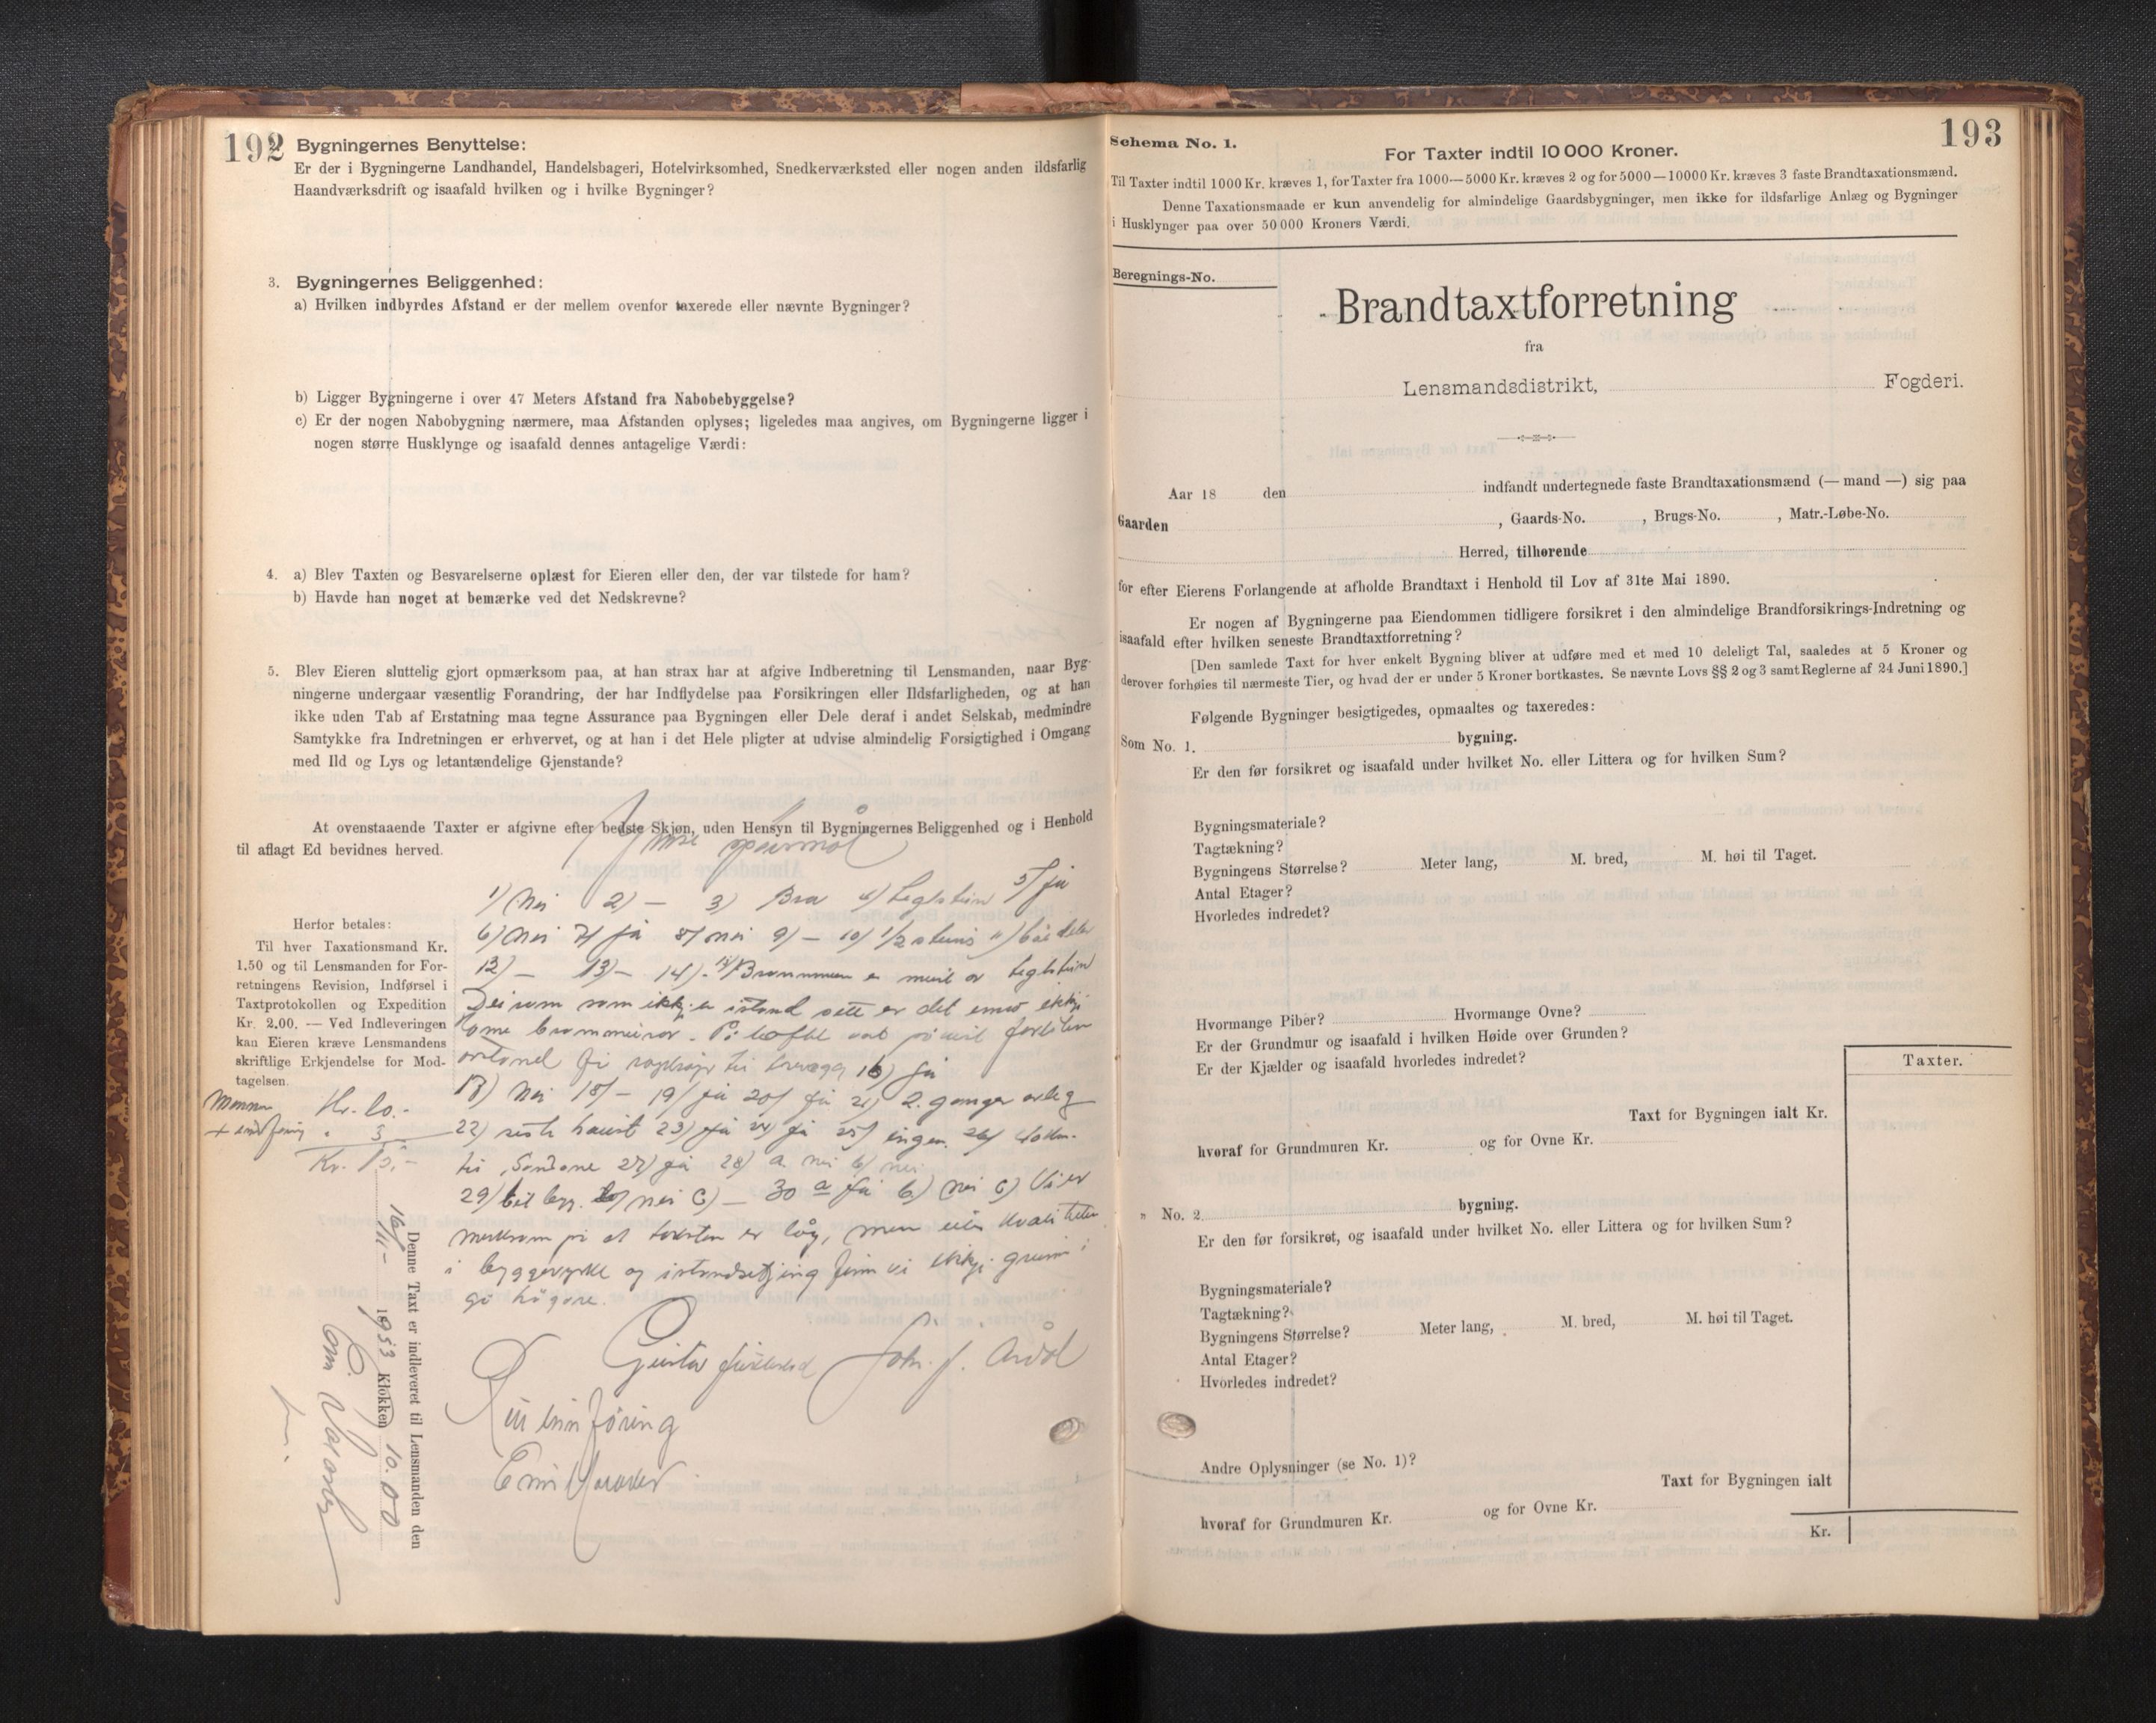 192
Bygningernes Benyttelse:
Er der i Bygningerne Landhandel, Handelsbageri, Hotelvirksomhed, Snedkerværksted eller nogen anden ildsfarlig
Haandværksdrift og isaafald hvilken og i hvilke Bygninger?
3. Bygningernes Beliggenhed:
a) Hvilken indbyrdes Afstand er der mellem ovenfor taxerede eller nævnte Bygninger?
b) Ligger Bygningerne i over 47 Meters Afstand fra Nabobebyggelse?
c) Er der nogen Nabobygning nærmere, maa Afstanden oplyses; ligeledes maa angives, om Bygningerne ligger i
nogen større Husklynge og isaafald dennes antagelige Værdi:
4. a) Blev Taxten og Besvarelserne oplæst for Eieren eller den, der var tilstede for ham?
b) Havde han noget at bemærke ved det Nedskrevne?
5. Blev Eieren sluttelig gjort opmærksom paa, at han strax har at afgive Indberetning til Lensmanden, naar Byg-
ningerne undergaar væsentlig Forandring, der har Indflydelse paa Forsikringen eller Ildsfarligheden, og at han
ikke uden Tab af Erstatning maa tegne Assurance paa Bygningen eller Dele deraf i andet Selskab, medmindre
Samtykke fra Indretningen er erhvervet, og at han i det Hele pligter at udvise almindelig Forsigtighed i Omgang
med Ild og Lys og letantændelige Gjenstande?
At ovenstaaende Taxter er afgivne efter bedste Skjøn, uden Hensyn til Bygningernes Beliggenhed og i Henhold
til aflagt Ed bevidnes herved.
Ymse spursmål
1) Nei 2) — 3) Bra 4) teglstein 5) ja
6) Nei 7) ja 8) nei 9) — 10) 1/2 steins 11)
12) — 13) — 14) - Brannmuren er murt av teglstein
Dei som som ikkje er istand sette er det ikkje
16) ja
17) Nei 18) — 19) ja 20) ja 21) 2. ganger årleg
22) siste haust 23) ja 24) ja 25) ingen. 26)
til Sandane 27) ja 28) a nei b) nei
29) b) nei c) — 30 a ja b) nei c) Vi er
merksom på at taksten er låg, men kvaliteten
i byggverke og istandsetjing finn vi ikkje grunn i
gå högare.
John. J. Årdal
Rett innföring
Herfor betales:
Til hver Taxationsmand Kr.
1.50 og til Lensmanden for For-
retningens Revision, Indførsel i
Taxtprotokollen og Expedition
Kr. 2.00. — Ved Indleveringen
kan Eieren kræve Lensmandens
skriftlige Erkjendelse for Mod-
tagelsen.
Denne Taxt er indleveret til Lensmanden den
16/11- 1933 Klokken 10.00
193
Schema No. 1.
For Taxter indtil 10 000 Kroner.
Til Taxter indtil 1000 Kr. kræves 1, for Taxter fra 1000—5000 Kr. kræves 2 og for 5000—10000 Kr. kræves 3 faste Brandtaxationsmænd.
Denne Taxationsmaade er kun anvendelig for almindelige Gaardsbygninger, men ikke for ildsfarlige Anlæg og Bygninger
i Husklynger paa over 50 000 Kroners Værdi.
Beregnings-No.
Brandtaxtforretning
fra
Lensmandsdistrikt, Fogderi.
Aar 18 den indfandt undertegnede faste Brandtaxationsmænd (— mand —) sig paa
Gaarden , Gaards-No. , Brugs-No. , Matr.-Løbe-No.
Herred, tilhørende
for efter Eierens Forlangende at afholde Brandtaxt i Henhold til Lov af 31te Mai 1890.
Er nogen af Bygningerne paa Eiendommen tidligere forsikret i den almindelige Brandforsikrings-Indretning og
isaafald efter hvilken seneste Brandtaxtforretning?
[Den samlede Taxt for hver enkelt Bygning bliver at udføre med et med 10 deleligt Tal, saaledes at 5 Kroner og
derover forhøies til nærmeste Tier, og hvad der er under 5 Kroner bortkastes. Se nævnte Lovs §§ 2 og 3 samt Reglerne af 24 Juni 1890.]
Følgende Bygninger besigtigedes, opmaaltes og taxeredes:
Som No. 1. bygning.
Er den før forsikret og isaafald under hvilket No. eller Littera og for hvilken Sum?
Bygningsmateriale?
Tagtækning?
Bygningens Størrelse? Meter lang, M. bred, M. høi til Taget.
Antal Etager?
Hvorledes indredet?
Hvormange Piber? Hvormange Ovne?
Er der Grundmur og isaafald i hvilken Høide over Grunden?
Er der Kjælder og isaafald hvorledes indredet?
Taxter.
Taxt for Bygningen ialt Kr.
hvoraf for Grundmuren Kr. og for Ovne Kr.
„ No. 2 bygning.
Er den før forsikret, og isaafald under hvilket No. eller Littera og for hvilken Sum?
Bygningsmateriale?
Tagtækning?
Bygningens Størrelse? Meter lang, M. bred, M. høi til Taget.
Antal Etager?
Hvorledes indredet?
Andre Oplysninger (se No. 1)?
Taxt for Bygningen ialt
hvoraf for Grundmuren Kr. og for Ovne Kr.
Kr.